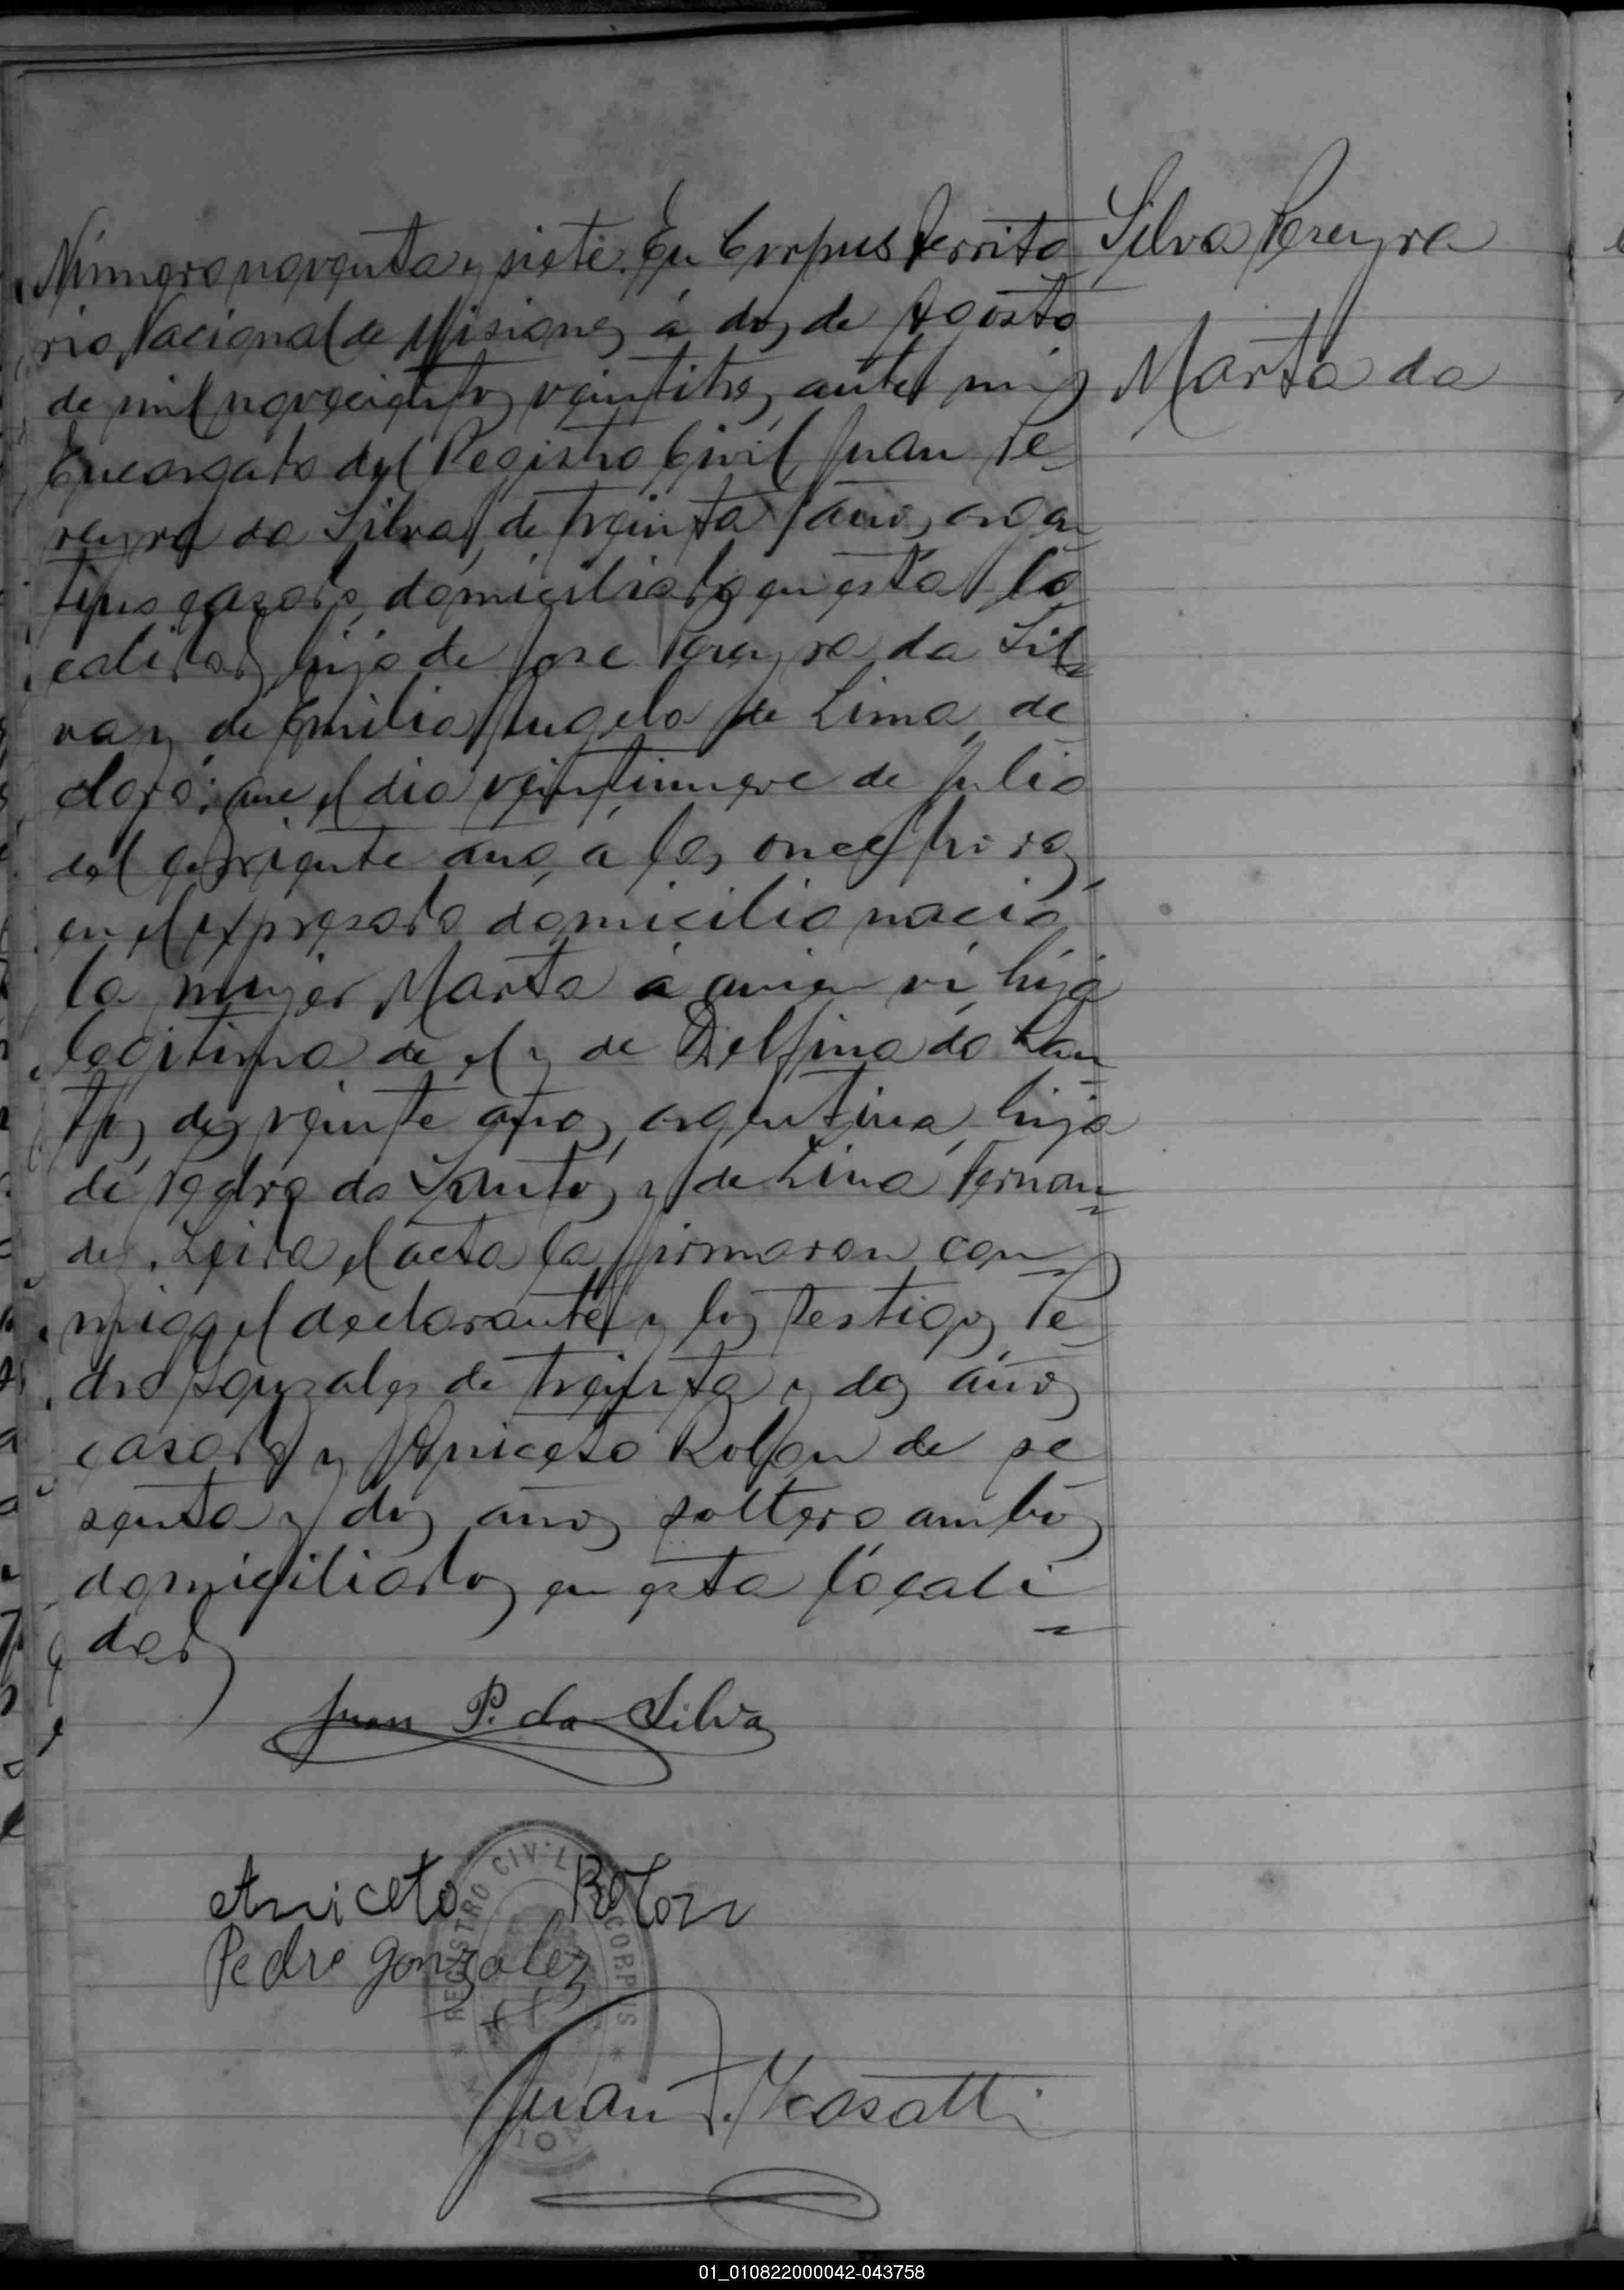 Número noventa y siete. En Corpus Territo
rio Nacional de Misiones á dos de Agosto
de mil novecientos veintitres, ante mi
Encargado del Registro Civil, Juan Pe-
reyra da Silva, de treinta años, argen
tino casado, domiciliado en esta lo
calidad, hijo de Jose Pereyra da Sil-
va y de Emilia Angela de Lima, de
claró: que el dia veintinueve de Julio
del corriente año, á las once horas
en el expresado domicilio nació
la mujer Marta á quien vi hija
legitima de el y de Delfina do San-
tos, de veinte años, argentina, hija
de Pedro do Santos, y de Lina Fernan-
des. Leida el acta la firmaron con-
migo el declarante y los testigos, Pe
dro Gonzales de treinta y dos años
casado y Aniceto Rolon de se
senta y dos años soltero ambos
domiciliados en esta locali-
dad
Silva Pereyra
Marta da
Juan P. da Silva
Aniceto Rolon
Pedro Gonzalez
REGISTRO CIVIL CORPUS
Juan
01_010822000042-043758